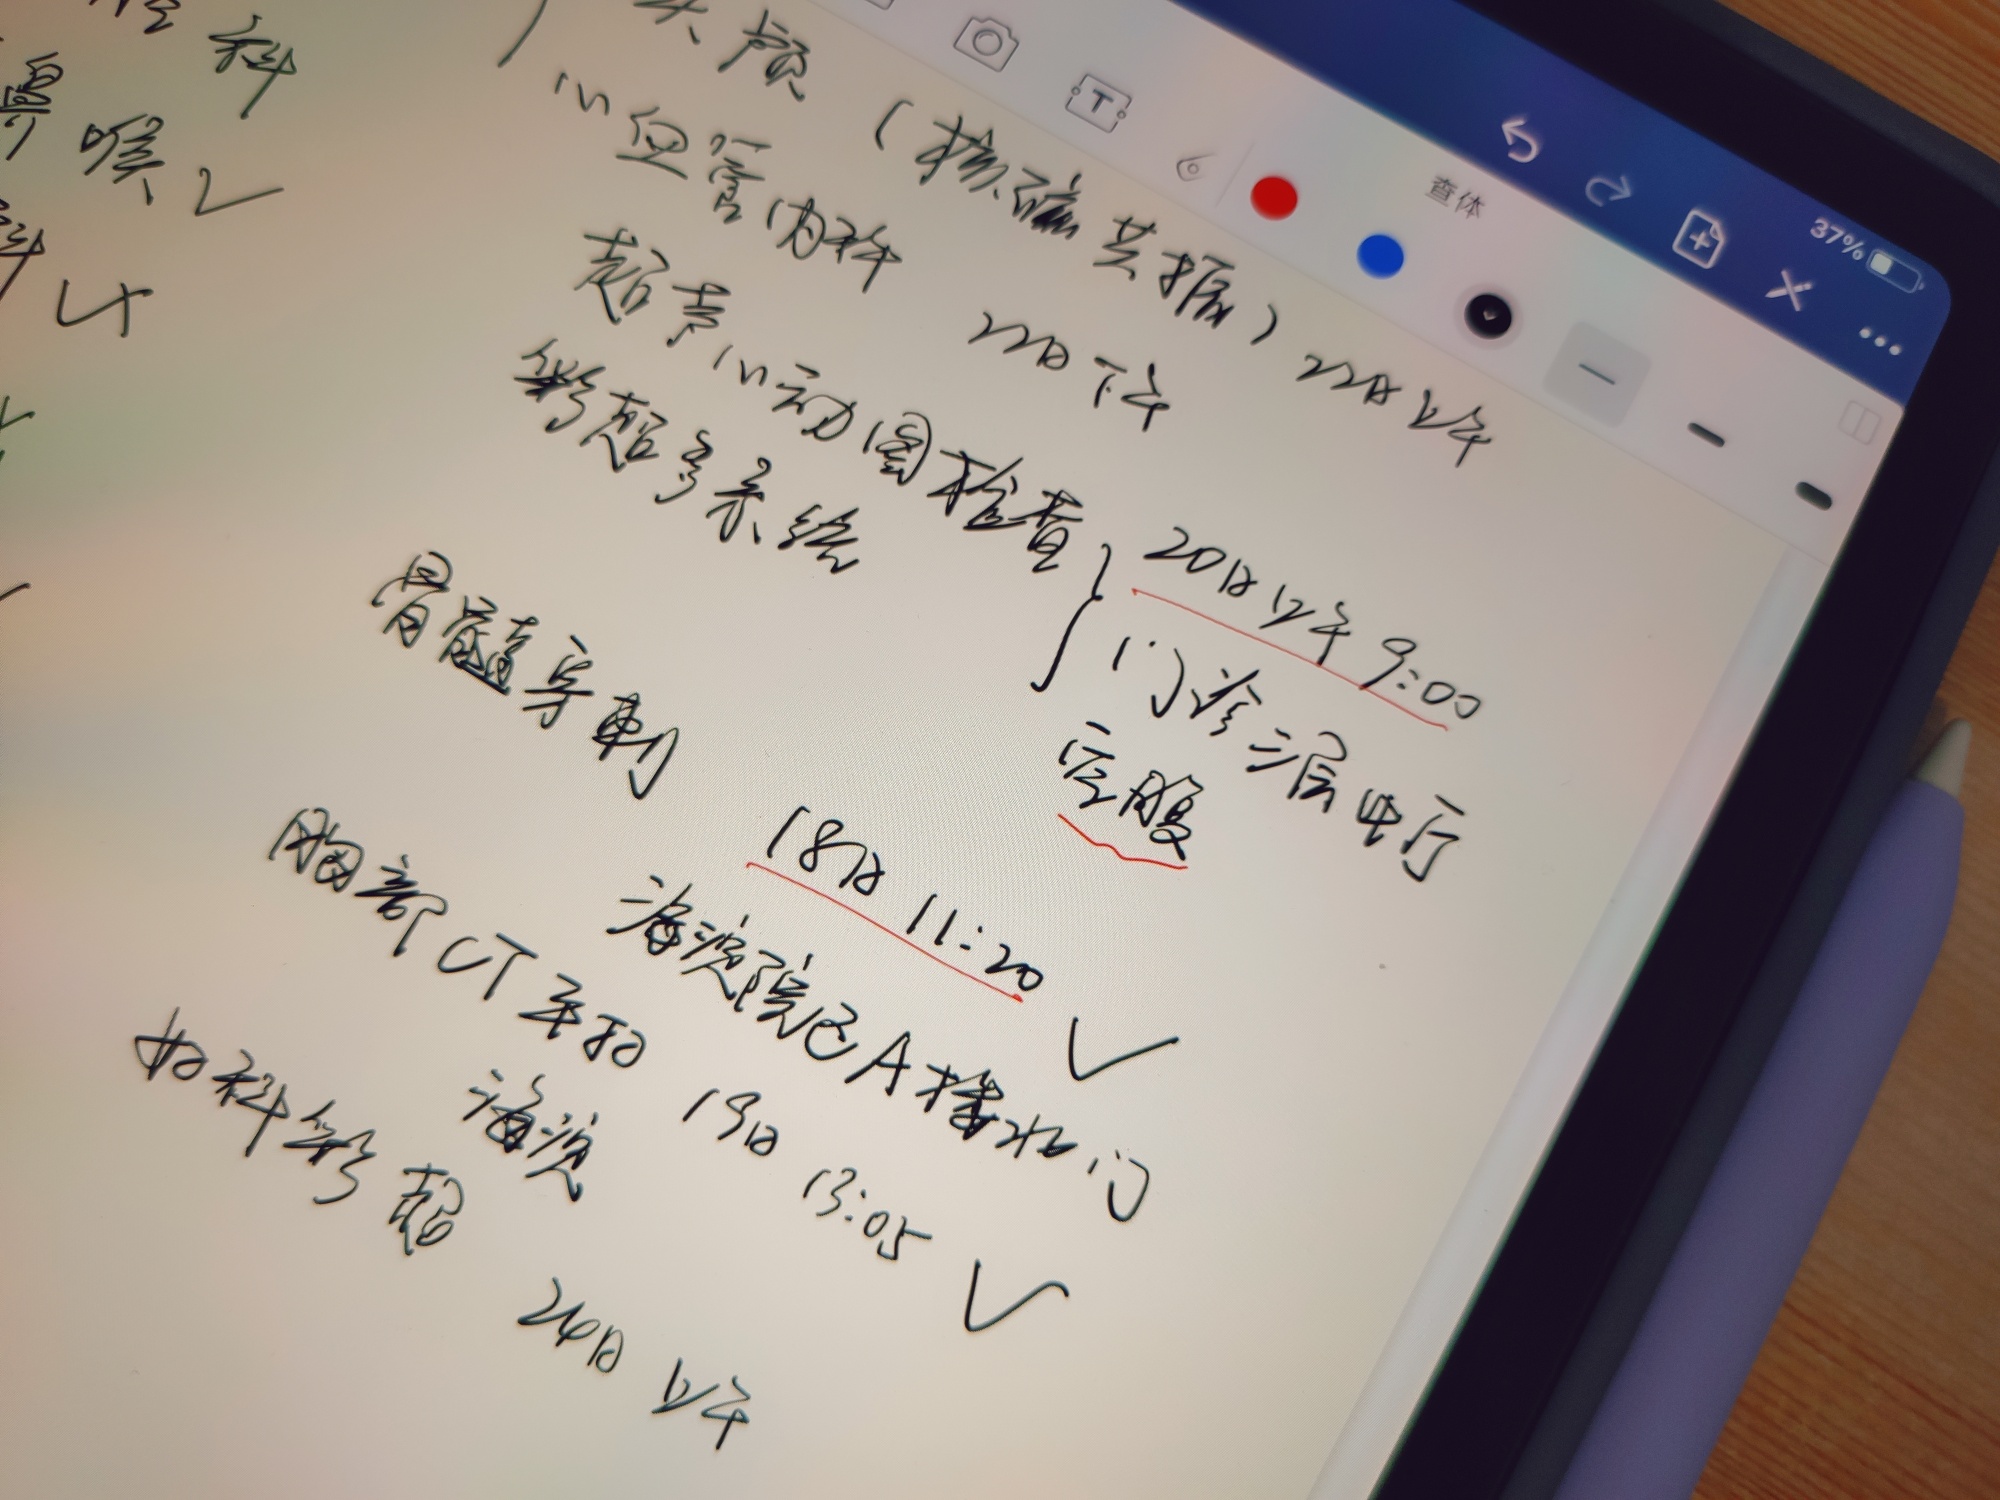 37%
查体
科
鼻喉✓
科
头颅（核磁共振）22日上午
心血管内科 22日下午
超声心动图检查
彩超多系统
20日上午9:00
门诊二层中厅
空腹
骨髓穿刺
18日 11:20 ✓
海淀院区A楼北门
胸部CT平扫 19日 13:05 ✓
海淀
妇科彩超 24日上午